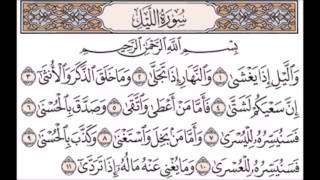 سُورَةُ اللَّيْلِ
بِسْمِ اللَّهِ الرَّحْمَٰنِ الرَّحِيمِ
وَاللَّيْلِ إِذَا يَغْشَىٰ ١ وَالنَّهَارِ إِذَا تَجَلَّىٰ ٢ وَمَا خَلَقَ الذَّكَرَ وَالْأُنثَىٰ ٣
إِنَّ سَعْيَكُمْ لَشَتَّىٰ ٤ فَأَمَّا مَنْ أَعْطَىٰ وَاتَّقَىٰ ٥ وَصَدَّقَ بِالْحُسْنَىٰ ٦
فَسَنُيَسِّرُهُ لِلْيُسْرَىٰ ٧ وَأَمَّا مَنْ بَخِلَ وَاسْتَغْنَىٰ ٨ وَكَذَّبَ بِالْحُسْنَىٰ ٩
فَسَنُيَسِّرُهُ لِلْعُسْرَىٰ ١٠ وَمَا يُغْنِي عَنْهُ مَالُهُ إِذَا تَرَدَّىٰ ١١